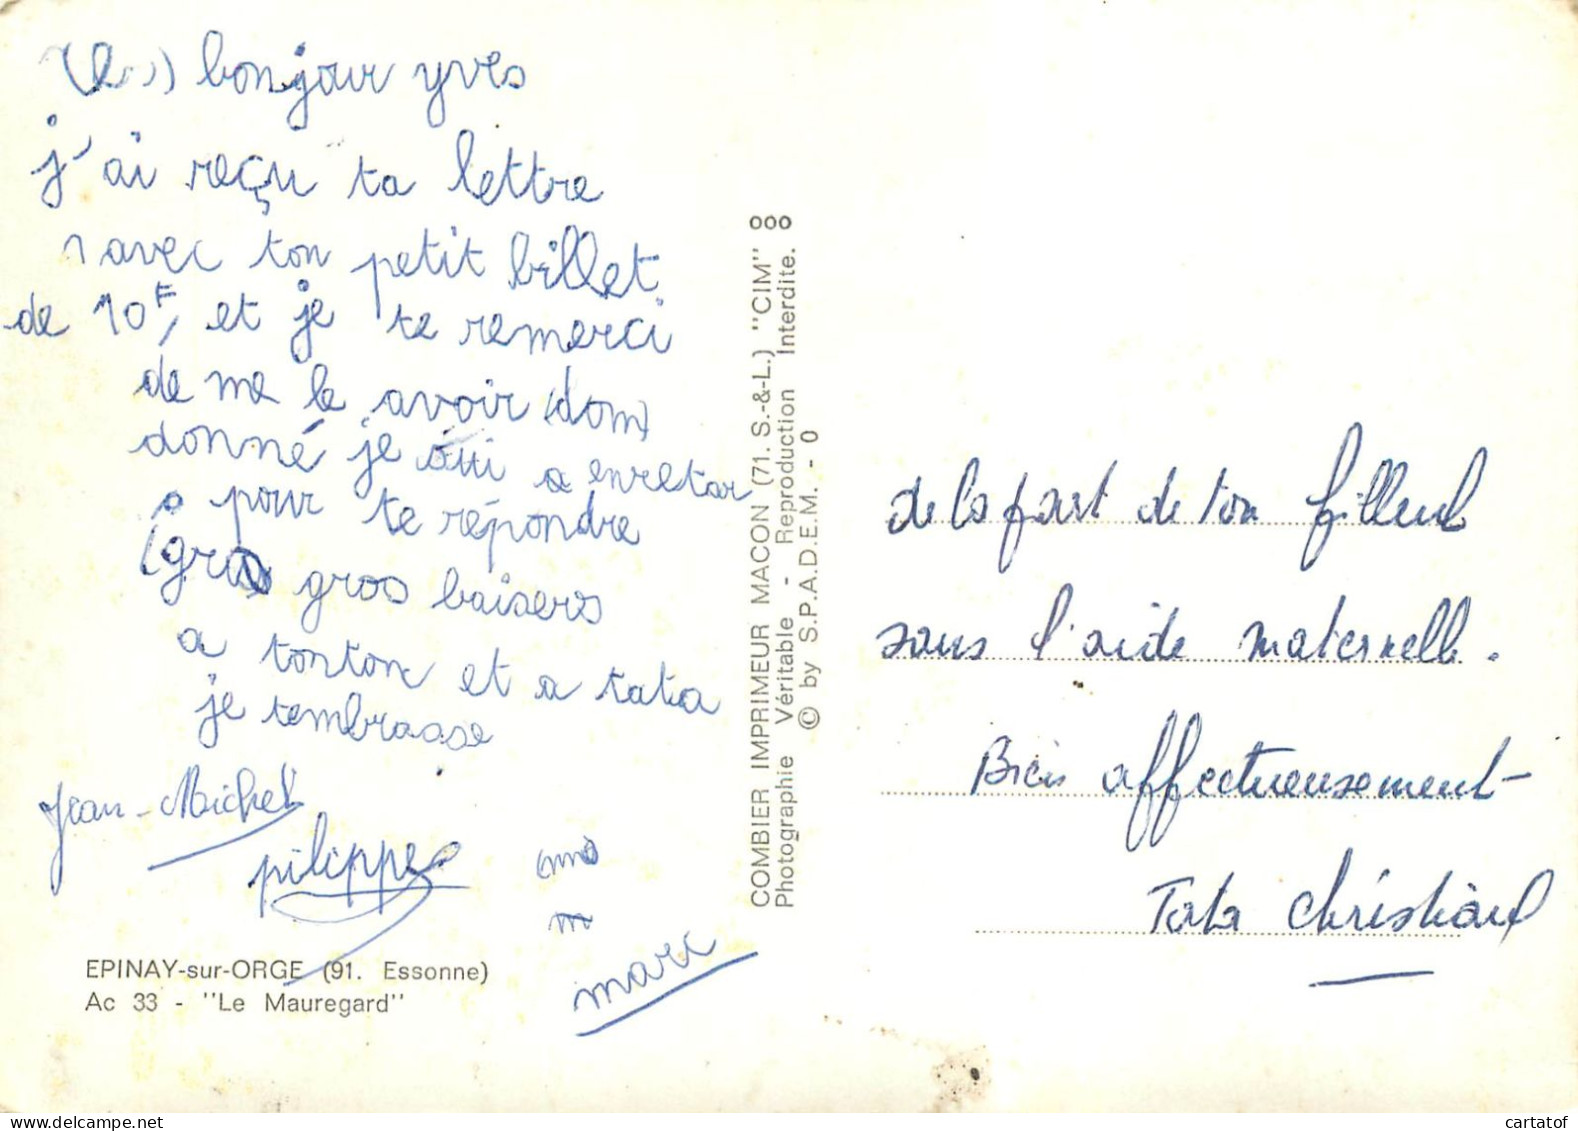 bonjour yves
j'ai reçu ta lettre
avec ton petit billet
de 10F, et je te remerci
de me le avoir (dom)
donné je sui a enretar
pour te répondre
gros gros baisers
a tonton et a tata
je tembrasse
Jean-Michel
pilippe
marc
EPINAY-sur-ORGE (91. Essonne)
Ac 33 - "Le Mauregard"
COMBIER IMPRIMEUR MACON (71. S.-&-L.) "CIM"
Photographie Véritable - Reproduction Interdite.
© by S.P.A.D.E.M. - 0
de la part de ton filleul
sans l'aide maternelle.
Bien affectueusement
Tata Christiane
cartatof